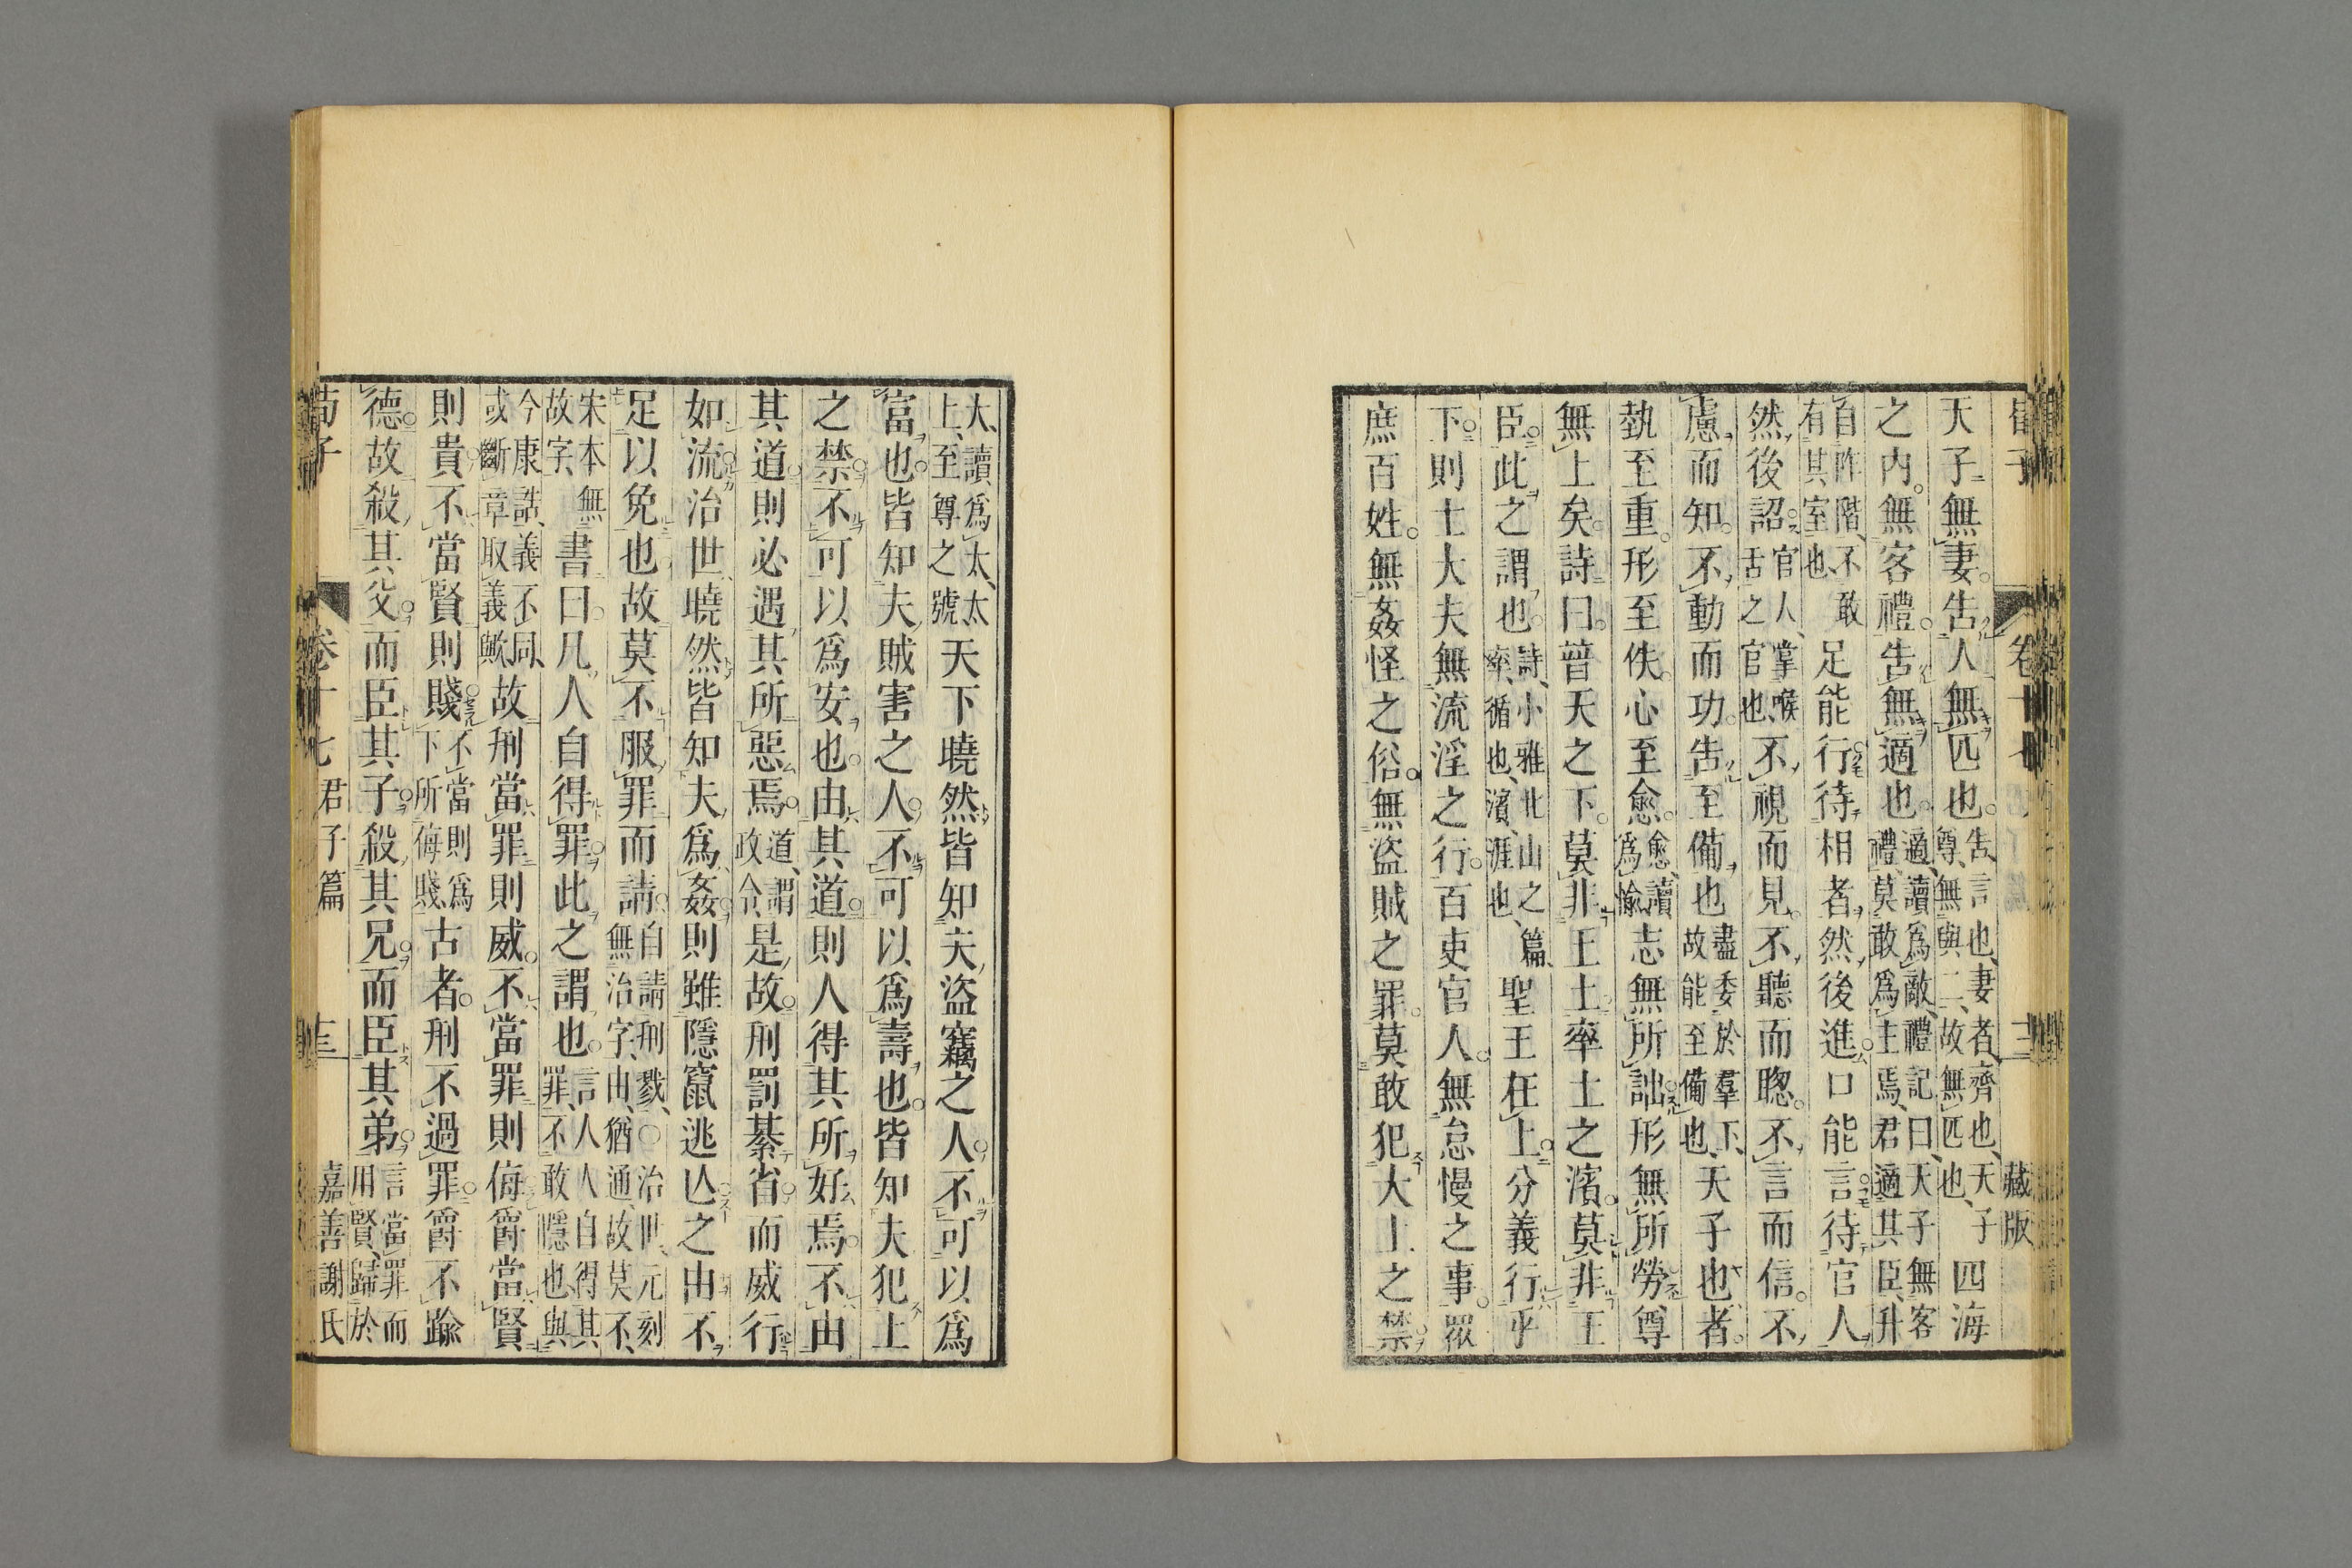 荀子 卷十七 十二 藏版
天子無妻。告人無匹也。告、言也、妻者、齊也、天子尊、無與二、故無匹也、四海
之內。無客禮。告無適也。適、讀爲敵、禮記曰、天子無客禮、莫敢爲主焉、君適其臣、升
自阼階、不敢有其室也、足能行待相者。然後進。口能言。待官人。
然後詔。官人、掌喉舌之官也、不視而見。不聽而聰。不言而信。不
慮而知。不動而功。告至備也。盡委於羣下、故能至備也、天子也者。
埶至重。形至佚。心至愈。愈、讀爲愉、志無所詘。形無所勞。尊
無上矣。詩曰。普天之下。莫非王土。率土之濱。莫非王
臣。此之謂也。詩、小雅北山之篇、率、循也、濱、涯也、聖王在上。分義行乎
下。則士大夫無流淫之行。百吏官人。無怠慢之事。眾
庶百姓。無姦怪之俗。無盜賊之罪。莫敢犯大上之禁。
大、讀爲太、太上、至尊之號天下曉然皆知夫盜竊之人。不可以爲
富也。皆知夫賊害之人。不可以爲壽也。皆知夫犯上
之禁。不可以爲安也。由其道。則人得其所好焉。不由
其道。則必遇其所惡焉。道、謂政令、是故刑罰綦省。而威行
如流。治世曉然皆知夫爲姦。則雖隱竄逃亾之由不
足以免也。故莫不服罪而請。自請刑戮、○治世、元刻無治字、由、猶通、故莫不、
宋本無故字、書曰。凡人自得罪。此之謂也。言人人自得其罪、不敢隱也、與
今康誥、義不同、或斷章取義歟、故刑當罪則威。不當罪則侮。爵當賢
則貴。不當賢則賤。不當則爲下所侮賤、古者。刑不過罪。爵不踰
德。故殺其父。而臣其子。殺其兄。而臣其弟。言當罪而用賢、歸於
荀子 卷十七 君子篇 十三 嘉善謝氏